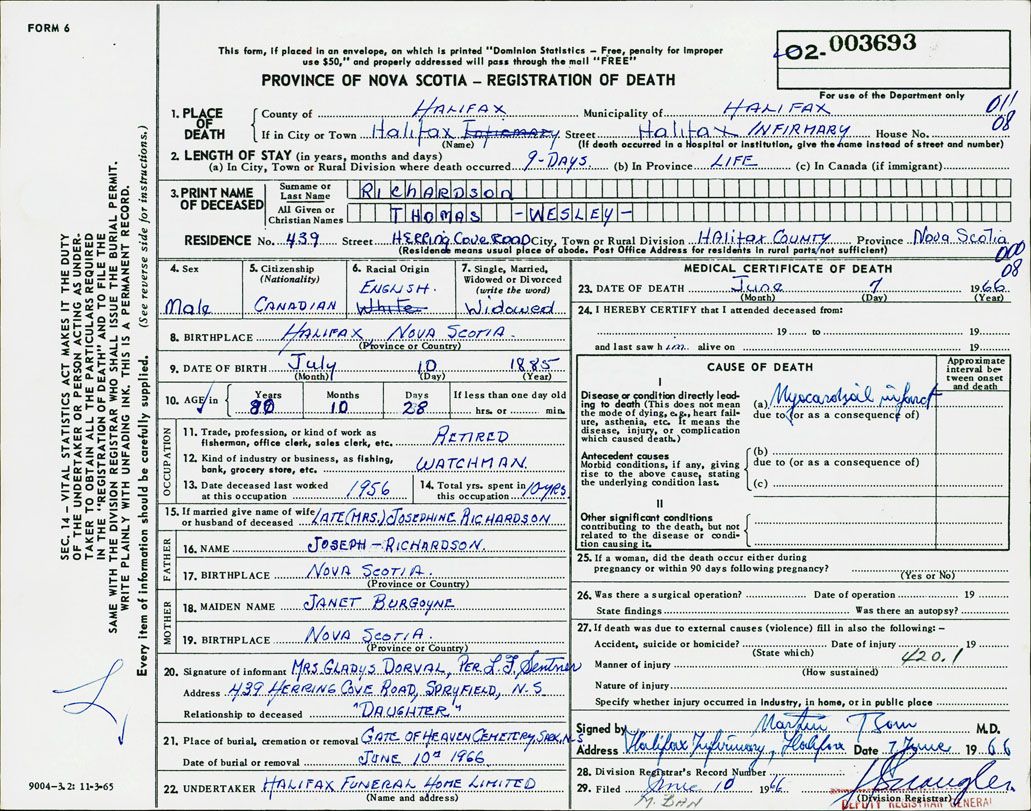 FORM 6
This form, if placed in an envelope, on which is printed "Dominion Statistics – Free, penalty for improper
use $50," and properly addressed will pass through the mail "FREE"
PROVINCE OF NOVA SCOTIA – REGISTRATION OF DEATH
02- 003693
For use of the Department only
011
08
1. PLACE OF DEATH County of HALIFAX Municipality of HALIFAX
If in City or Town Halifax Infirmary Street Halifax INFIRMARY House No.
(Name) (If death occurred in a Hospital or Institution, give the name instead of street and number)
2. LENGTH OF STAY (in years, months and days)
(a) In City, Town or Rural Division where death occurred 9-DAYS. (b) In Province LIFE (c) In Canada (if immigrant)
3. PRINT NAME OF DECEASED Surname or Last Name RICHARDSON
All Given or Christian Names THOMAS -WESLEY-
RESIDENCE No. 439 Street HERRING COVE ROAD City, Town or Rural Division HALIFAX COUNTY Province NOVA SCOTIA
(Residence means usual place of abode. Post Office Address for residents in rural parts not sufficient)
000
08
4. Sex Male
5. Citizenship (Nationality) CANADIAN
6. Racial Origin ENGLISH. White
7. Single, Married, Widowed or Divorced (write the word) Widowed
8. BIRTHPLACE HALIFAX NOVA SCOTIA.
(Province or Country)
9. DATE OF BIRTH July 10 1885
(Month) (Day) (Year)
10. AGE in Years 80 Months 10 Days 28 If less than one day old hrs. or min.
OCCUPATION
11. Trade, profession, or kind of work as
fisherman, office clerk, sales clerk, etc. RETIRED
12. Kind of industry or business, as fishing,
bank, grocery store, etc. WATCHMAN.
13. Date deceased last worked
at this occupation 1956
14. Total yrs. spent in
this occupation 10-YRS.
15. If married give name of wife
or husband of deceased LATE (MRS.) JOSEPHINE RICHARDSON
FATHER
16. NAME JOSEPH – RICHARDSON.
17. BIRTHPLACE NOVA SCOTIA.
(Province or Country)
MOTHER
18. MAIDEN NAME JANET BURGOYNE
19. BIRTHPLACE NOVA SCOTIA.
(Province or Country)
20. Signature of informant MRS. GLADYS DORVAL, PER. L.F. Sentner
Address 439 HERRING COVE ROAD, SPRYFIELD, N.S
Relationship to deceased "DAUGHTER"
21. Place of burial, cremation or removal GATE OF HEAVEN CEMETERY, SACK, N-S
Date of burial or removal JUNE 10th 1966
22. UNDERTAKER HALIFAX FUNERAL HOME LIMITED
(Name and address)
MEDICAL CERTIFICATE OF DEATH
23. DATE OF DEATH June 7 1966
(Month) (Day) (Year)
24. I HEREBY CERTIFY that I attended deceased from:
19 to 19
and last saw him alive on 19
CAUSE OF DEATH
Approximate interval between onset and death
I
Disease or condition directly leading to death (This does not mean the mode of dying, e.g., heart failure, asthenia, etc. It means the disease, injury, or complication which caused death.)
(a) Myocardial infarct
due to (or as a consequence of)
Antecedent causes
Morbid conditions, if any, giving rise to the above cause, stating the underlying condition last.
(b)
due to (or as a consequence of)
(c)
II
Other significant conditions
contributing to the death, but not related to the disease or condition causing it.
25. If a woman, did the death occur either during
pregnancy or within 90 days following pregnancy?
(Yes or No)
26. Was there a surgical operation? Date of operation 19
State findings Was there an autopsy?
27. If death was due to external causes (violence) fill in also the following: –
Accident, suicide or homicide? Date of injury 19
(State which) 420.1
Manner of injury
(How sustained)
Nature of injury
Specify whether injury occurred in industry, in home, or in public place
Signed by Martin M.D.
Address Halifax Infirmary, Halifax Date 7 June 1966
28. Division Registrar's Record Number
29. Filed June 10 1966
(Division Registrar)
DEPUTY REGISTRAR GENERAL
SEC. 14 – VITAL STATISTICS ACT MAKES IT THE DUTY
OF THE UNDERTAKER OR PERSON ACTING AS UNDER-
TAKER TO OBTAIN ALL THE PARTICULARS REQUIRED
IN THE "REGISTRATION OF DEATH" AND TO FILE THE
SAME WITH THE DIVISION REGISTRAR WHO SHALL ISSUE THE BURIAL PERMIT.
WRITE PLAINLY WITH UNFADING INK. THIS IS A PERMANENT RECORD.
Every item of information should be carefully supplied. (See reverse side for instructions.)
9004-3.2: 11-3-65